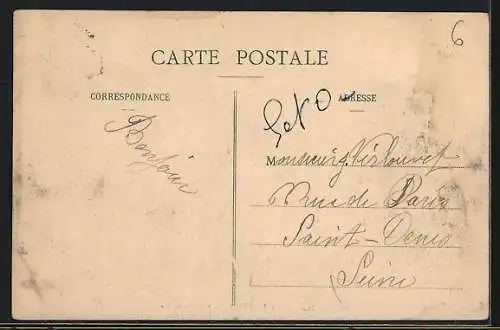 6
CARTE POSTALE
CORRESPONDANCE
ADRESSE
Bonjour
Monsieur
Rue de Paris
Saint-Denis
Seine